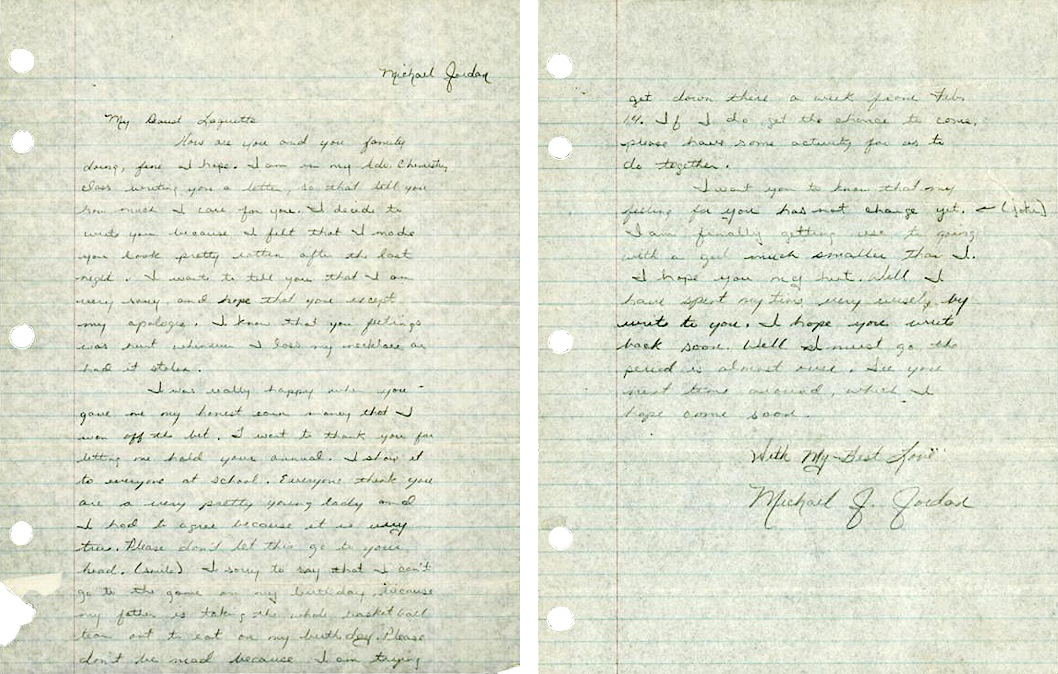 Michael Jordan
My Dearest Laquette
How are you and you family
doing, fine I hope. I am in my Adv. Chemistry
class writing you a letter, so that tell you
how much I care for you. I decide to
write you because I felt that I made
you look pretty rotten after the last
night. I want to tell you that I am
very sorry, and hope that you except
my apologie. I know that you feelings
was hurt whenever I loss my necklace or
had it stolen.
I was really happy when you
gave me my honest earn money that I
won off the bet. I want to thank you for
letting me hold your annual. I show it
to everyone at school. Everyone think you
are a very pretty young lady and
I had to agree because it is very
true. Please don't let this go to your
head. (smile) I sorry to say that I can't
go to the game on my birthday because
my father is taking the whole basketball
team out to eat on my birthday. Please
don't be mad because I am trying
get down there a week from Feb.
14. If I do get the chance to come,
please have some activity for us to
do together.
I want you to know that my
feeling for you has not change yet. — (joke)
I am finally getting use to going
with a girl much smaller than I.
I hope you my but. Well I
have spent my time very wisely by
write to you. I hope you write
back soon. Well I must go the
period is almost over. See you
next time around, which I
hope come soon.
With My Best Love
Michael J. Jordan